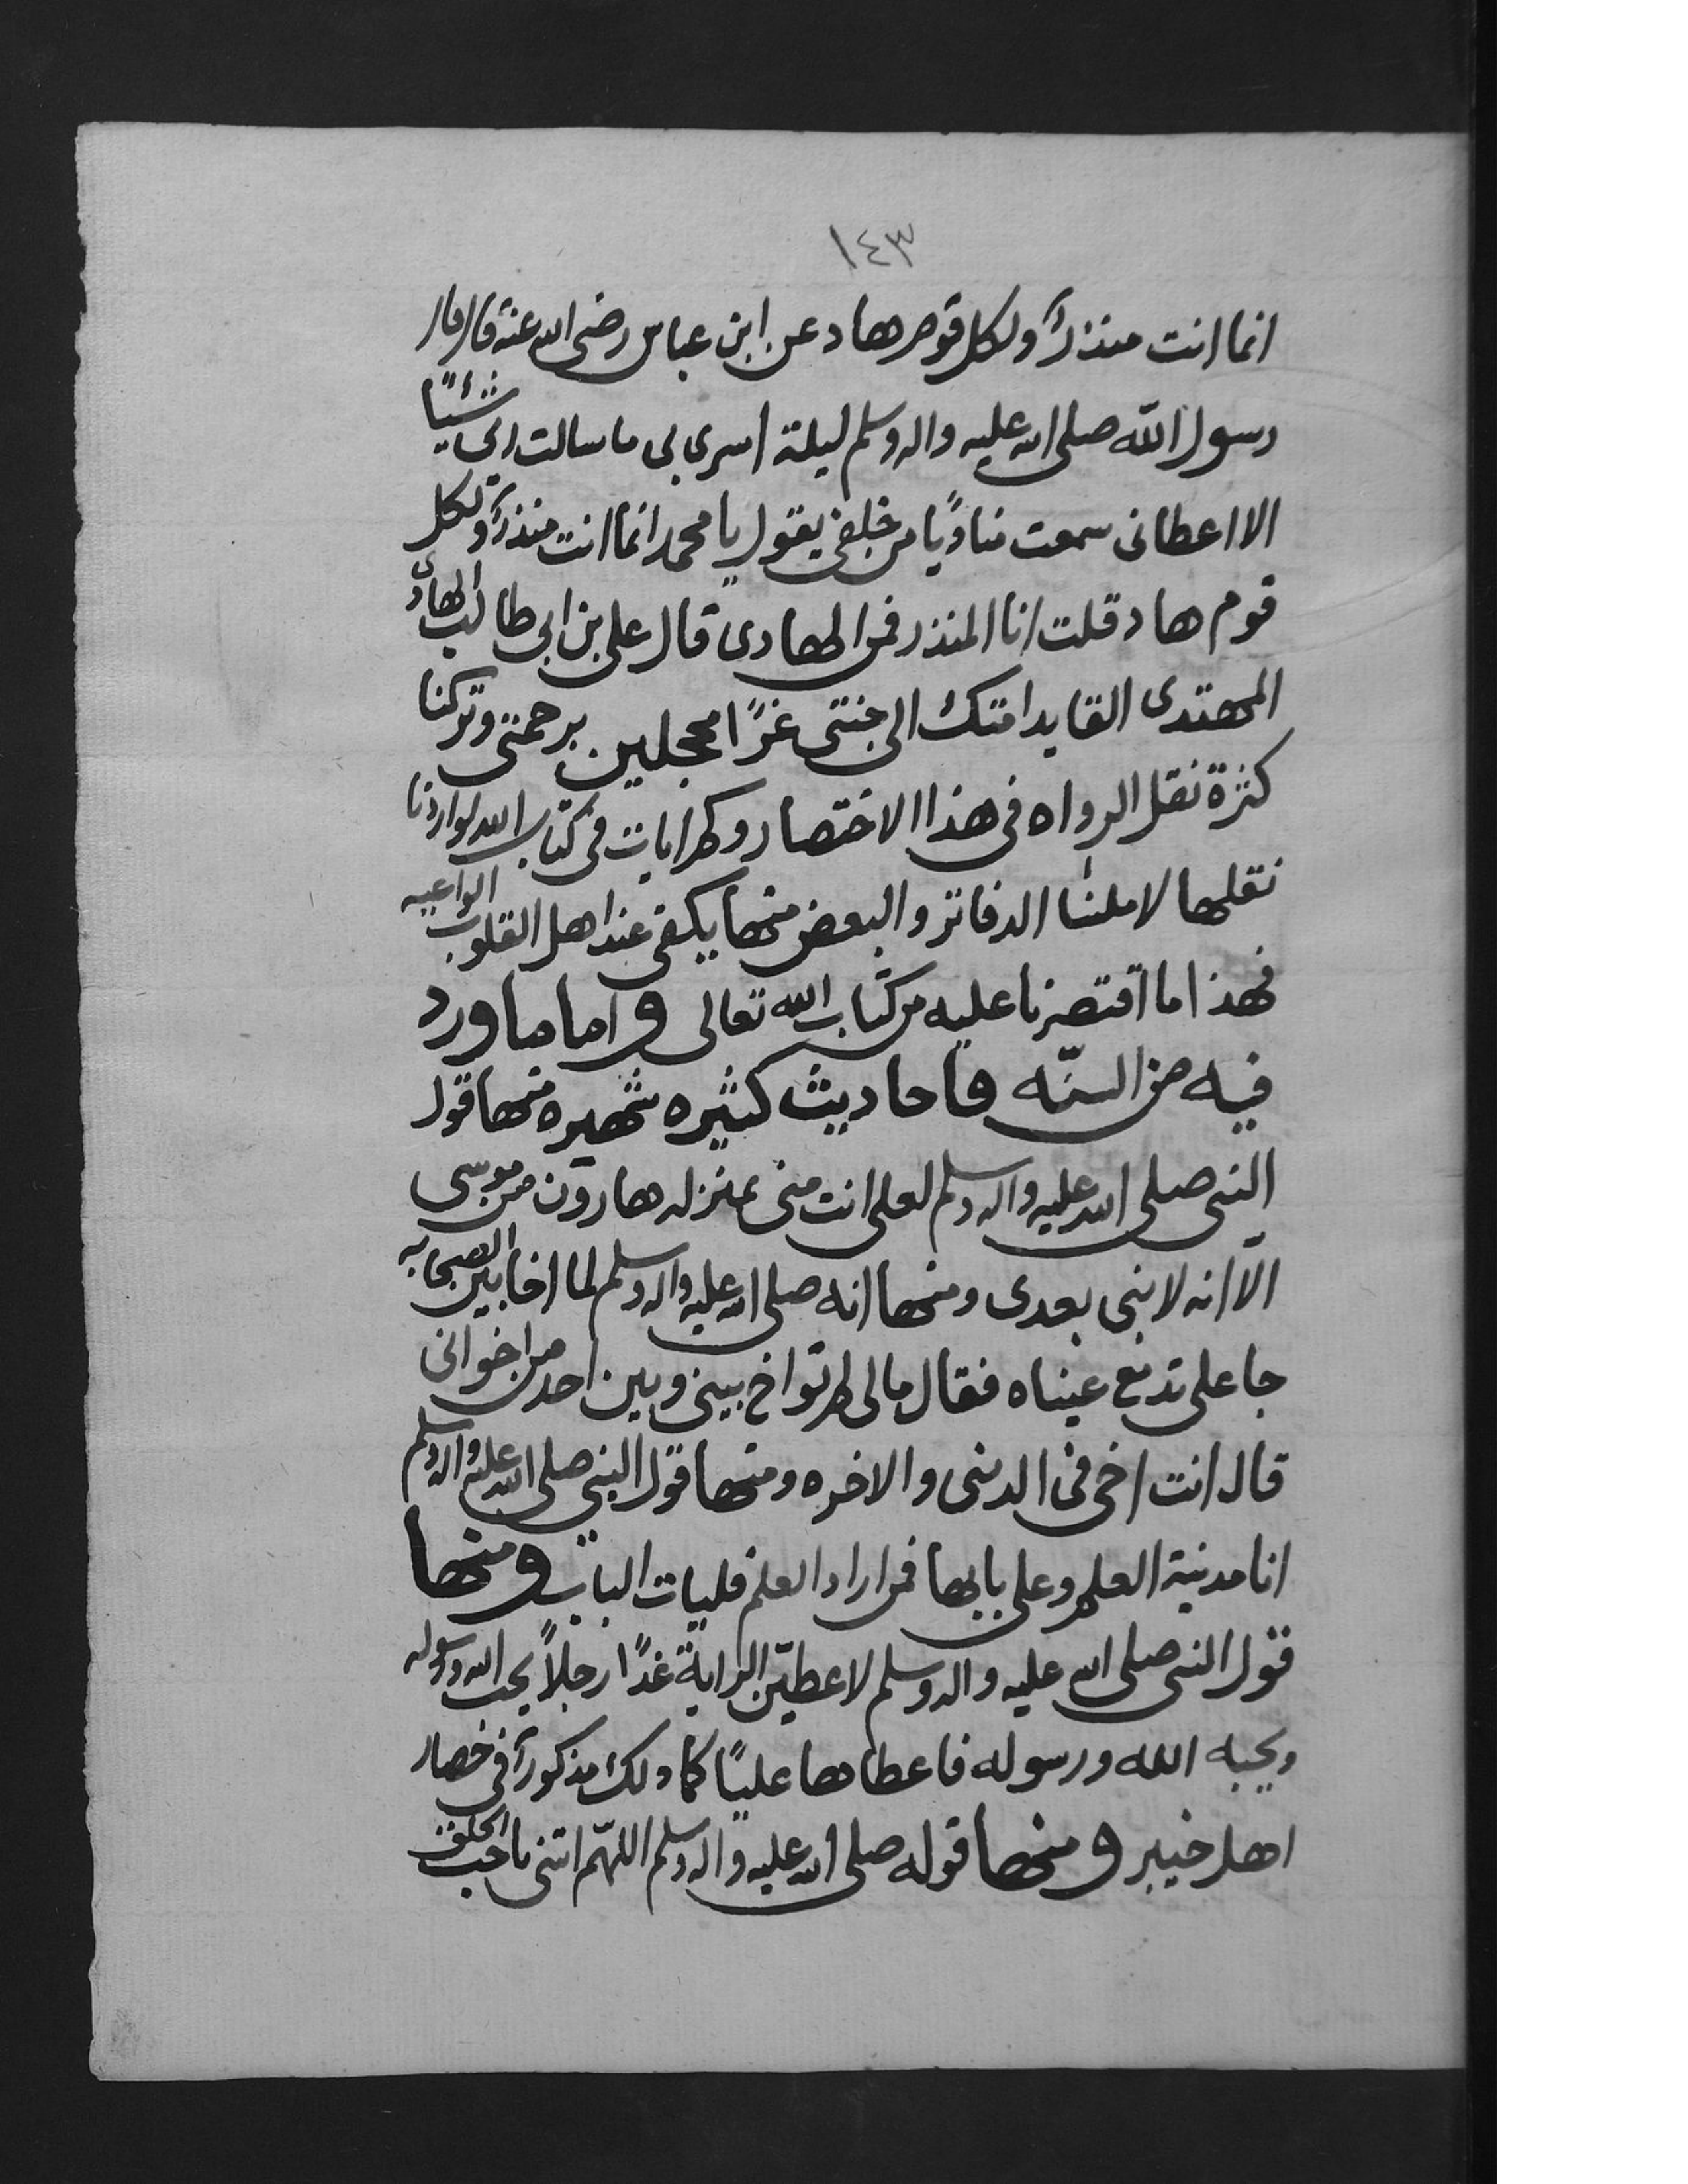 ١٤٣
انما انت منذرٌ ولكل قوم هاد عن ابن عباس رضى الله عنه قال قال
رسول اللّه صلى الله عليه واله وسلم ليلة اسرى بى ما سالت ربى شئيًا
الا اعطانى سمعت مناديًا من خلفى يقول يا محمد انما انت منذرٌ ولكل
قوم هاد قلت انا المنذر فمن الهادى قال على بن ابى طالب الهاد
المهتدى القايد امتك الى جنتى غرًا محجلين برحمتى وتركنا
كثرة نقل الرواه فى هذا الاختصار وكم ايات فى كتاب الله لو اردنا
نقلها لاملئنا الدفاتر والبعض منها يكفى عند اهل القلوب الواعيه
فهذا ما اقتصرنا عليه من كتاب الله تعالى واما ما ورد
فيه من السنّه فاحاديث كثيره شهيره منها قول
النبى صلى الله عليه واله وسلم لعلى انت منى بمنزله هارون من موسى
الّا انه لا نبى بعدى ومنها انه صلى الله عليه واله وسلم لما اخا بين الصحابه
جا على تدمع عيناه فقال مالى لم تواخ بينى وبين احد من اخوانى
قال انت اخى فى الدنى والاخره ومنها قول النبى صلى الله عليه واله وسلم
انا مدنية العلم وعلى بابها فمن اراد العلم فليات الباب ومنها
قول النبى صلى الله عليه واله وسلم لاعطيّن الراية غدًا رجلاً يحب الله ورسوله
ويحبه الله ورسوله فاعطاها عليًا كما ذلك مذكورٌ فى حصار
اهل خيبر ومنها قوله صلى الله عليه واله وسلم اللهّم اتنى باحب الخلق